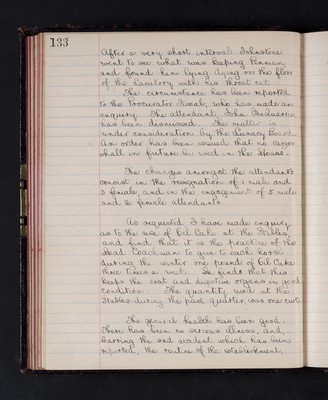 133
After a very short interval Johnstone
went to see what was keeping Penman
and found him lying dying on the floor
of the Lavatory with his throat cut.
The circumstance has been reported
to the Procurator Fiscal, who has made an
enquiry. The attendant, John
has been dismissed. The matter is
under consideration by the Lunacy Board.
An order has been issued that no razor
shall in future be used in the House.
The changes amongst the attendants
consist in the resignation of 1 male and
3 female, and in the engagement of 5 male
and 2 female attendants.
As requested I have made enquiry
as to the use of Oil Cake at the Stables
and find that it is the practice of the
Head Coachman to give to each horse
during the winter one pound of Oil Cake
three times a week. He finds that this
keeps the coat and digestive organs in good
condition. The quantity used at the
Stables during the past quarter, was one cwt.
The general health has been good.
There has been no serious illness, and,
barring the sad accident which has been
reported, the routine of the establishment,